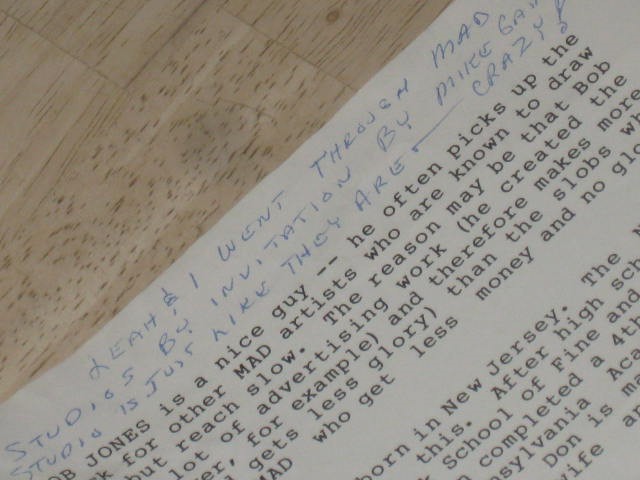 LEAH & I WENT THROUGH MAD
STUDIOS BY INVITATION BY MIKE GAI
STUDIO IS JUST LIKE THEY ARE — CRAZY!
OB JONES is a nice guy -- he often picks up the
k for other MAD artists who are known to draw
but reach slow. The reason may be that Bob
lot of advertising work (he created the
er, for example) and therefore makes more
d gets less glory) than the slobs wh
MAD who get less money and no glo
born in New Jersey. The N
this. After high sch
School of Fine and
completed a 4th
nsylvania Aca
Don is m
wife a